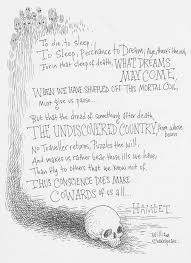 To die, to Sleep,
To Sleep, Perchance to Dream; Aye, there's the rub,
For in that sleep of death, WHAT DREAMS
MAY COME,
WHEN WE HAVE SHUFFLED OFF THIS MORTAL COIL,
Must give us pause...
But that the dread of something after death,
THE UNDISCOVERED COUNTRY, from whose bourn
No Traveller returns, Puzzles the will,
And makes us rather bear those ills we have,
Than fly to others that we know not of.
THUS CONSCIENCE DOES MAKE
COWARDS OF US ALL...
HAMLET.
William
Shakespeare